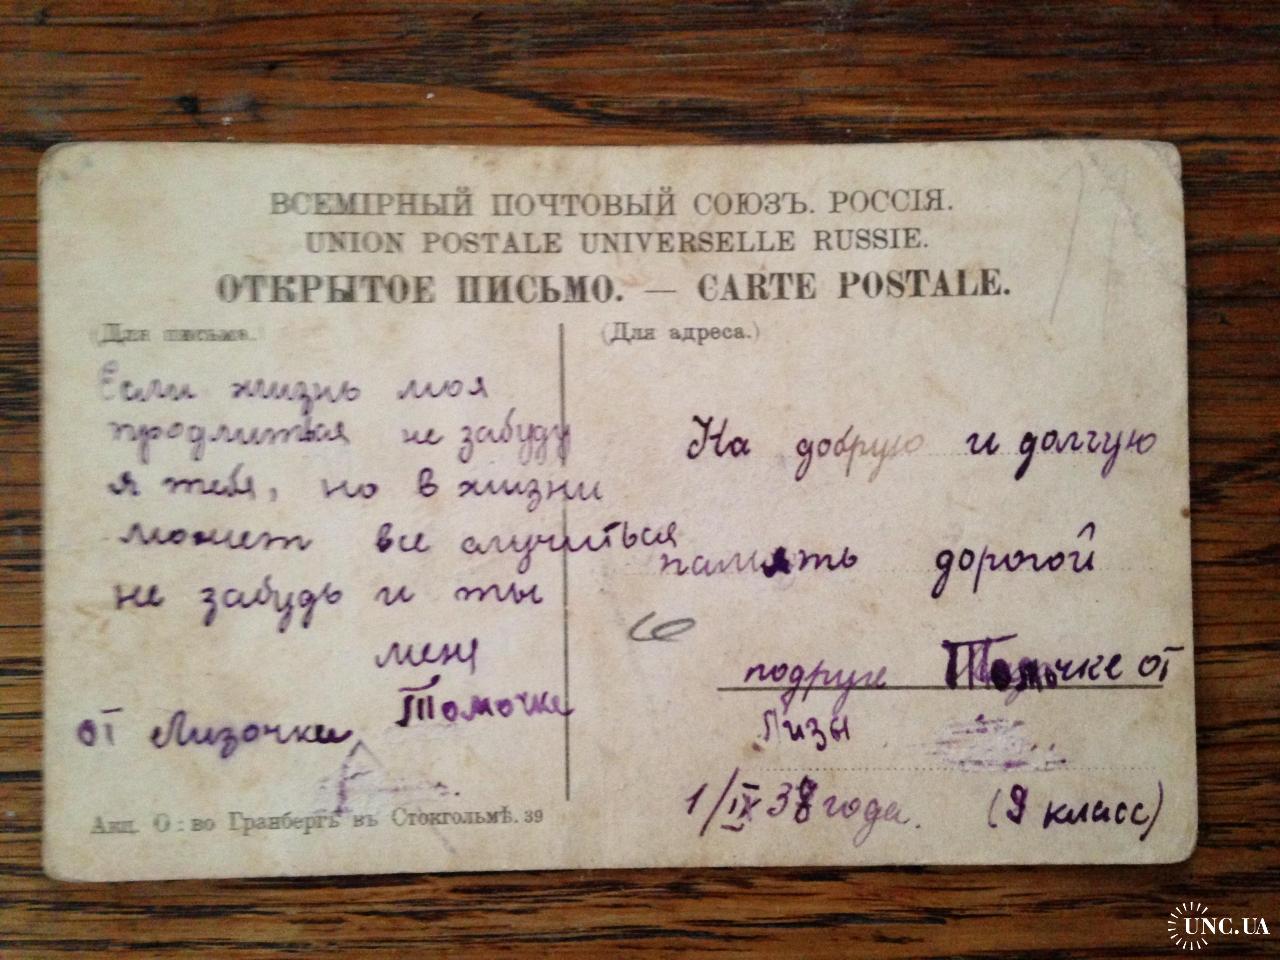 ВСЕМІРНЫЙ ПОЧТОВЫЙ СОЮЗЪ. РОССІЯ.
UNION POSTALE UNIVERSELLE RUSSIE.
ОТКРЫТОЕ ПИСЬМО. — CARTE POSTALE.
(Для письма.)
Если жизнь моя
продлиться не забуду
я тебя, но в жизни
может все случиться
не забудь и ты
меня
Томочке
от Лизочки
Акц. О-во Гранбергъ въ Стокгольмѣ. 39
(Для адреса.)
На добрую и долгую
память дорогой
6
подруге Томочке от
Лизы
1/IX 38 года. (9 класс)
UNC.UA